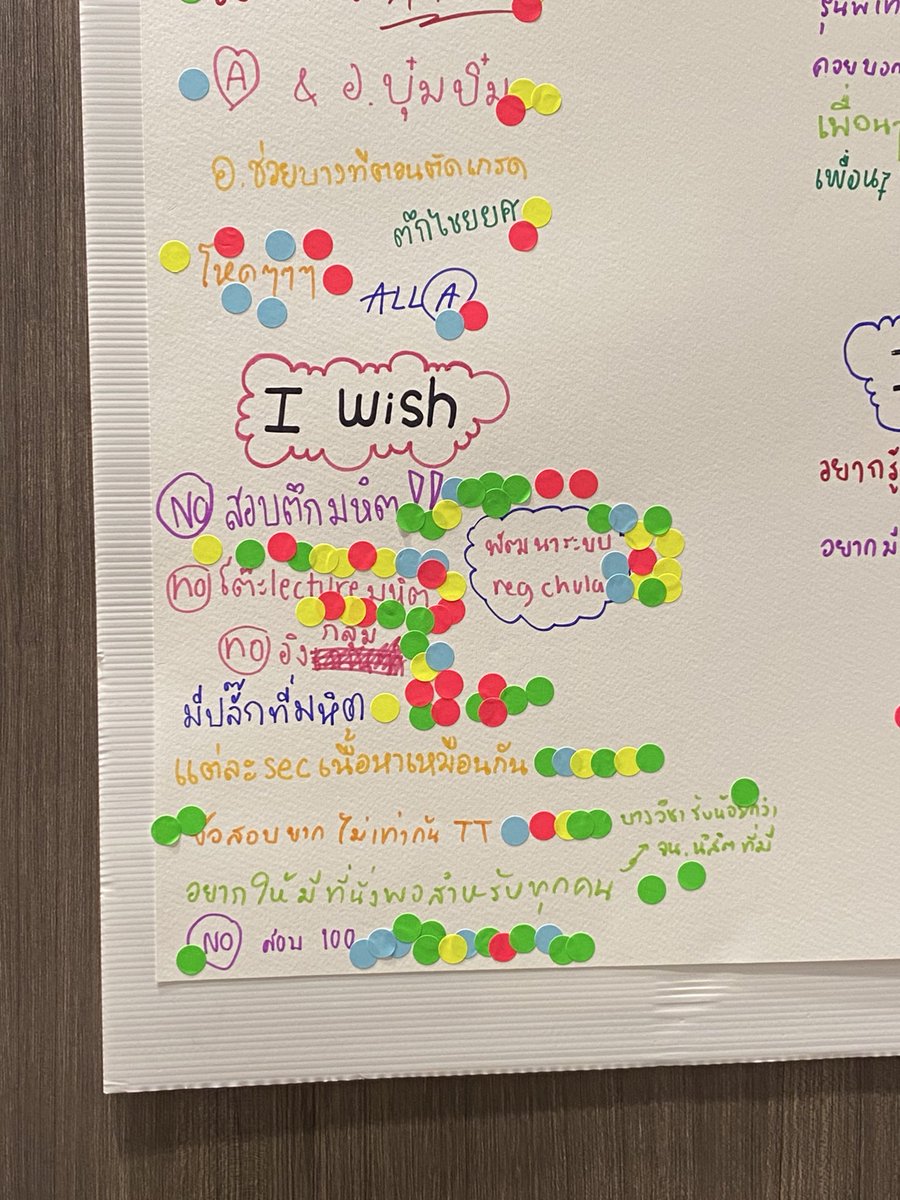 A & อ.บุ๋มบิ๋ม
อ.ช่วยบางทีตอนตัดเกรด
ตึกไชยยศ
โหดๆๆๆ
ALL A
I wish
NO สอบตึกมหิต !!
พัฒนาระบบ
reg chula
no โต๊ะlectureมหิต
no อิงกลุ่ม
มีปลั๊กที่มหิต
แต่ละsecเนื้อหาเหมือนกัน
ข้อสอบยาก ไม่เท่ากัน TT
บางวิชารับน้อยกว่า
จน.นิสิตที่มี
อยากให้มีที่นั่งพอสำหรับทุกคน
NO สอบ 100
คอยบอก
เพื่อนๆ
เพื่อนๆ
อยากรู้
อยากมี